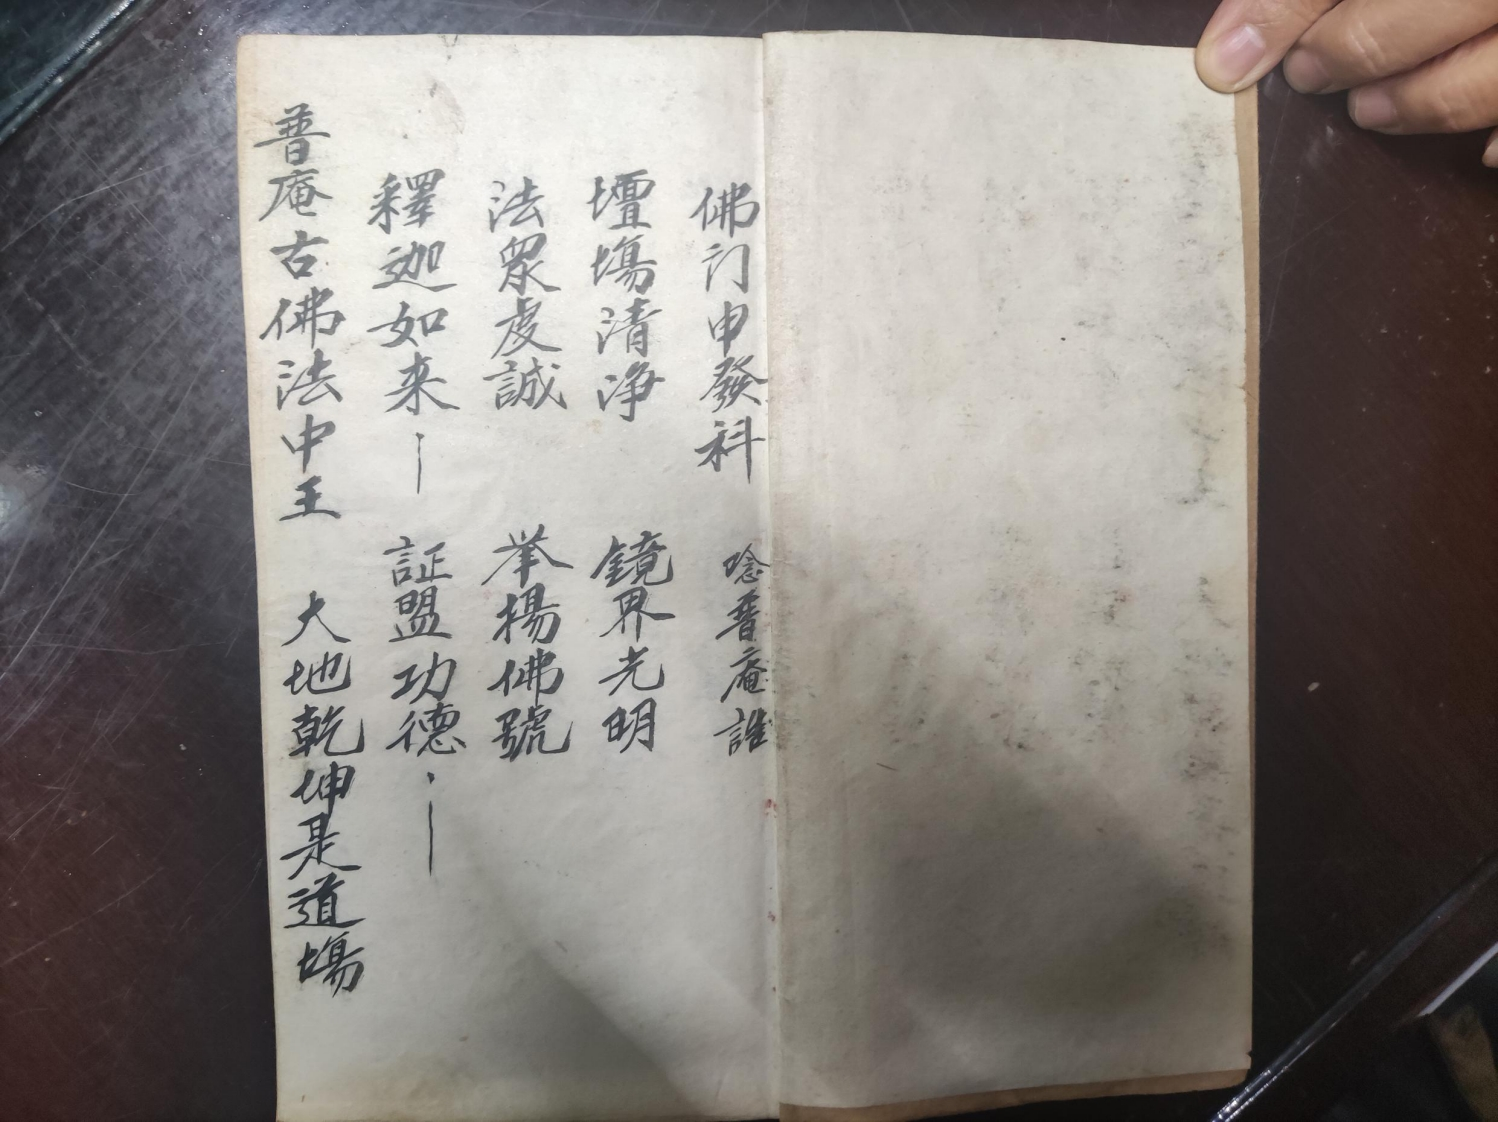 佛门申發科 唸普庵誰
壇塲清浄 鏡界光明
法眾虔誠 举揚佛號
釋迦如来 証盟功德
普庵古佛法中王 大地乾坤是道塲